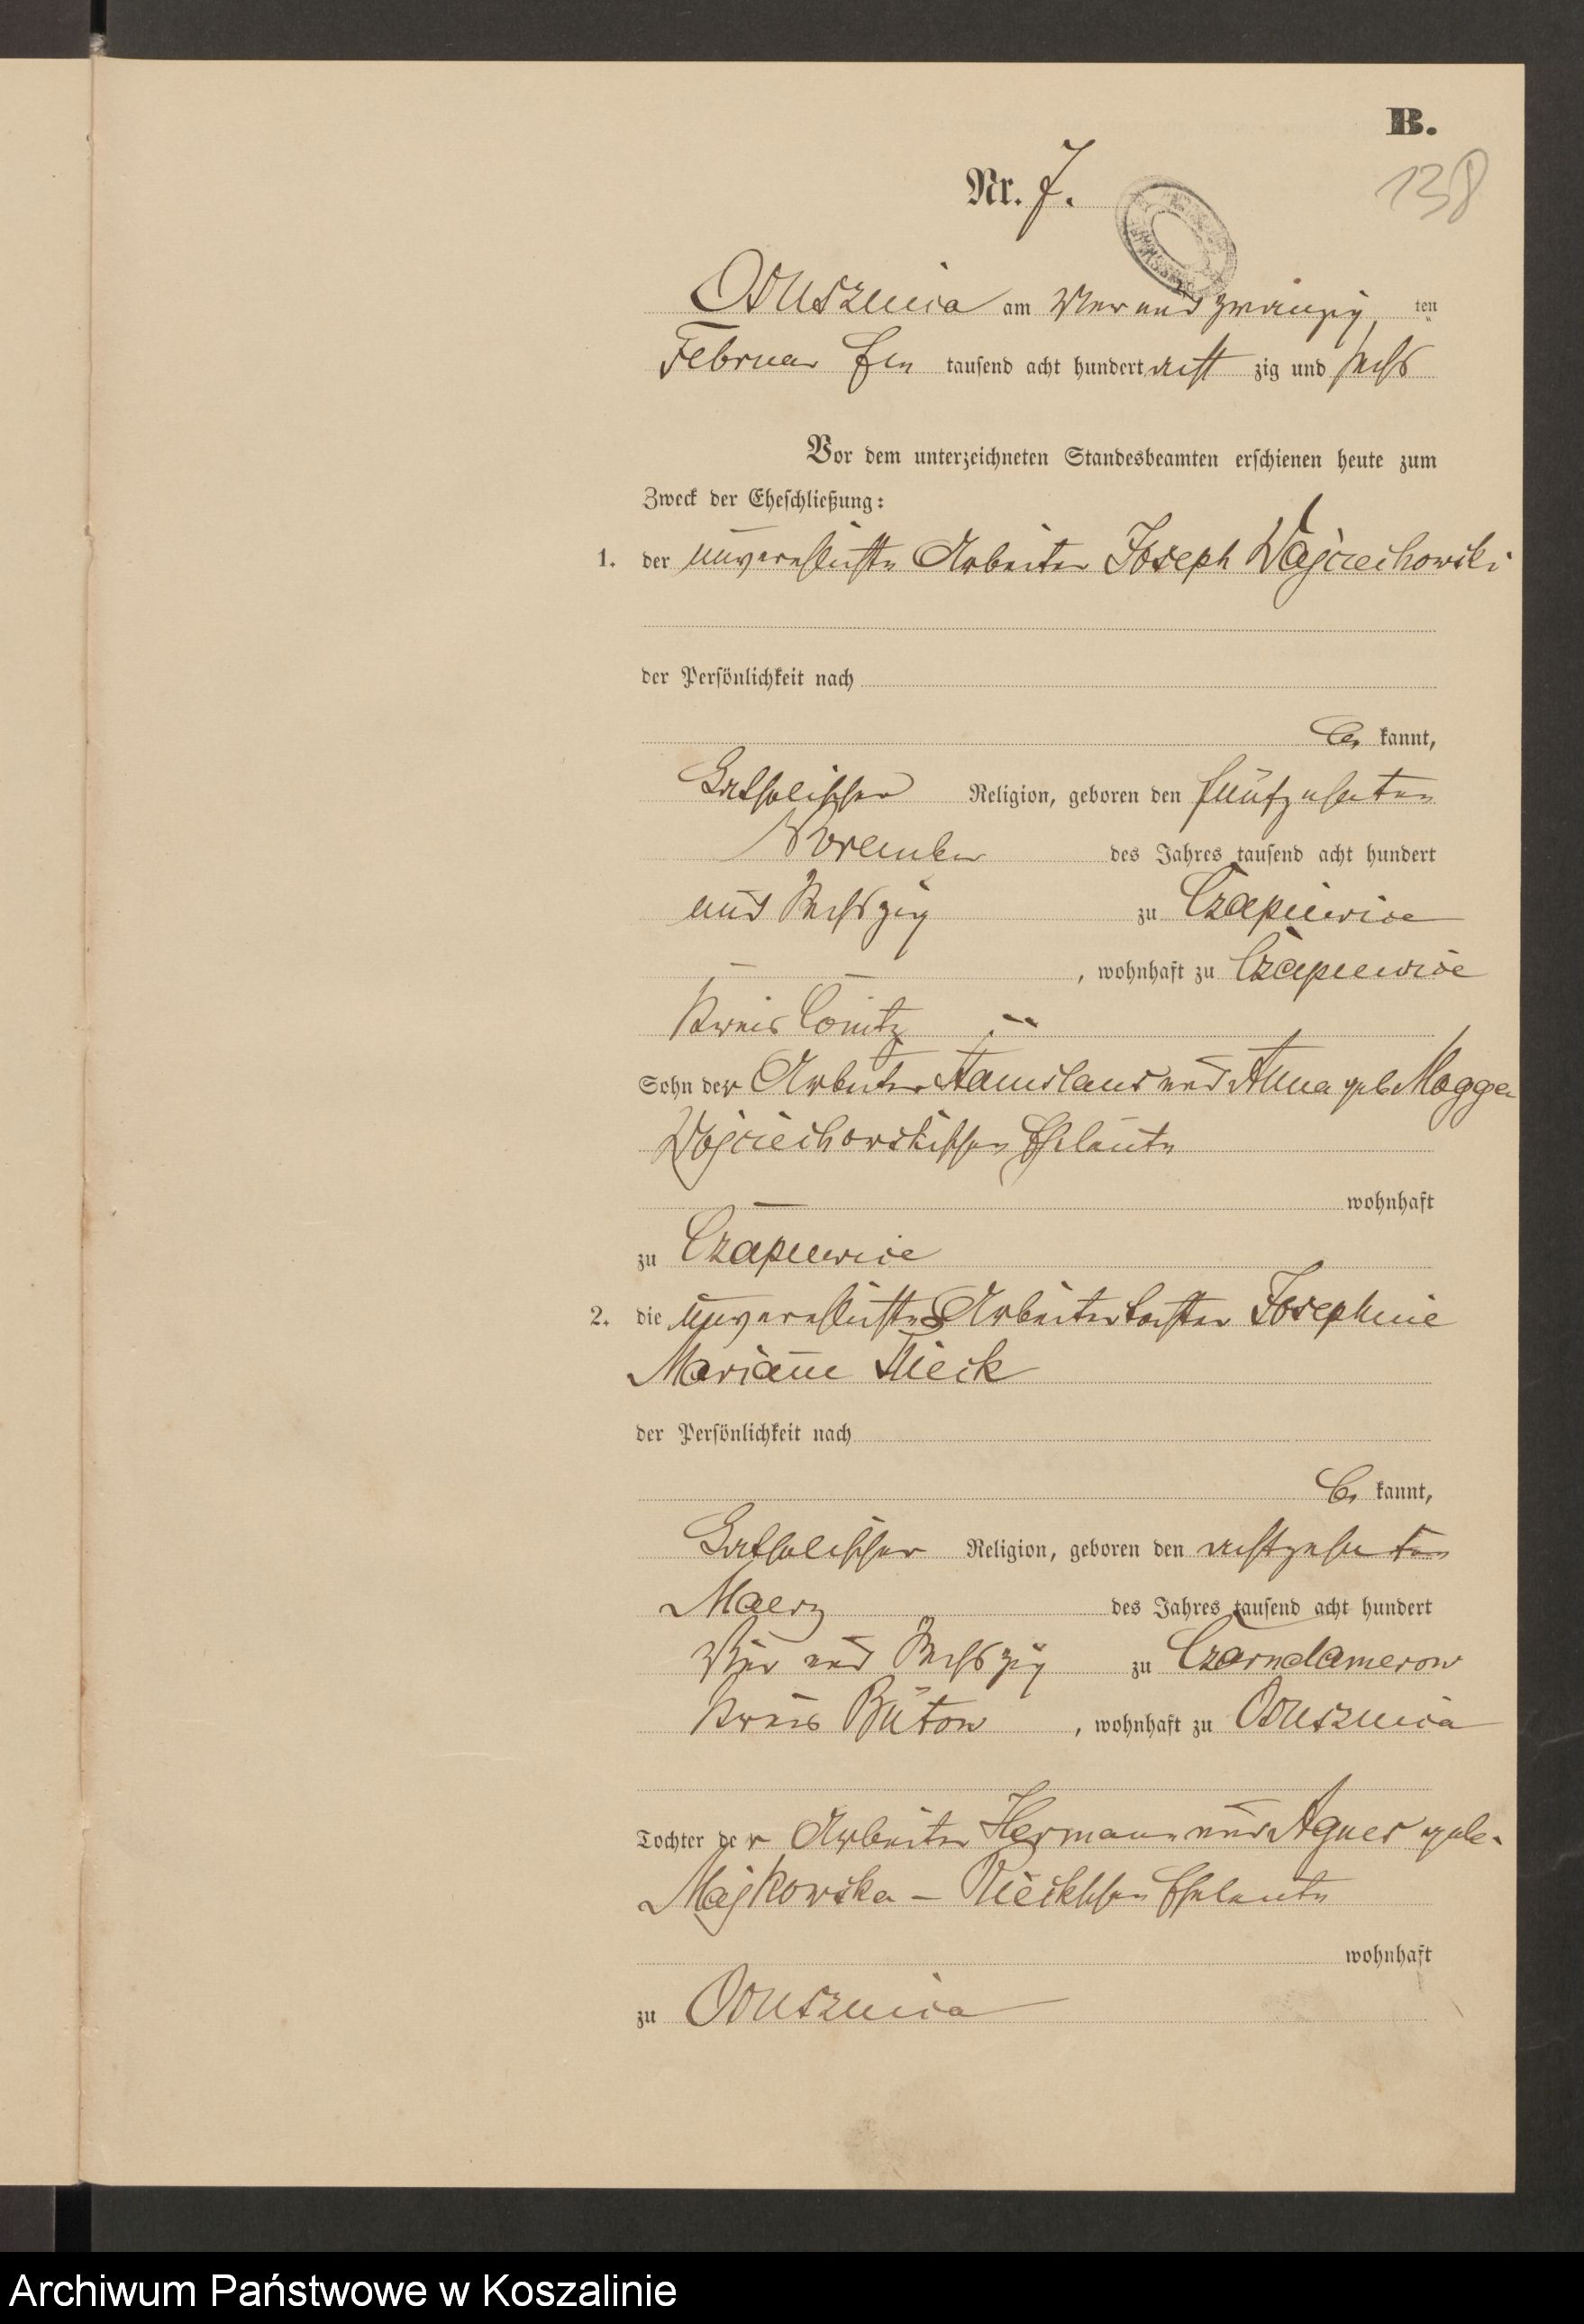 B.
138
Nr. 7.
Ossusznica am Vier und zwanzig ten
Februar Ein tausend acht hundert acht zig und sechs
Vor dem unterzeichneten Standesbeamten erschienen heute zum
Zweck der Eheschließung:
1. der unverehelichte Arbeiter Joseph Wojciechowski
der Persönlichkeit nach
be kannt,
Katholischer Religion, geboren den fünfzehnten
November des Jahres tausend acht hundert
und Sechszig zu Czapiewice
, wohnhaft zu Czapiewice
Kreis Conitz
Sohn der Arbeiter Stanislaus und Anna geb. Mogga
Wojciechowskischen Eheleute
wohnhaft
zu Czapiewice
2. die unverehelichte Arbeitertochter Josephine
Marianne Rieck
der Persönlichkeit nach
be kannt,
Katholischer Religion, geboren den achtzehnten
Maerz des Jahres tausend acht hundert
Vier und Sechszig zu Czarndamerow
Kreis Bütow , wohnhaft zu Ossusznica
Tochter der Arbeiter Hermann und Agnes geb.
Majkowska – Rieckschen Eheleute
wohnhaft
zu Ossusznica
Archiwum Państwowe w Koszalinie